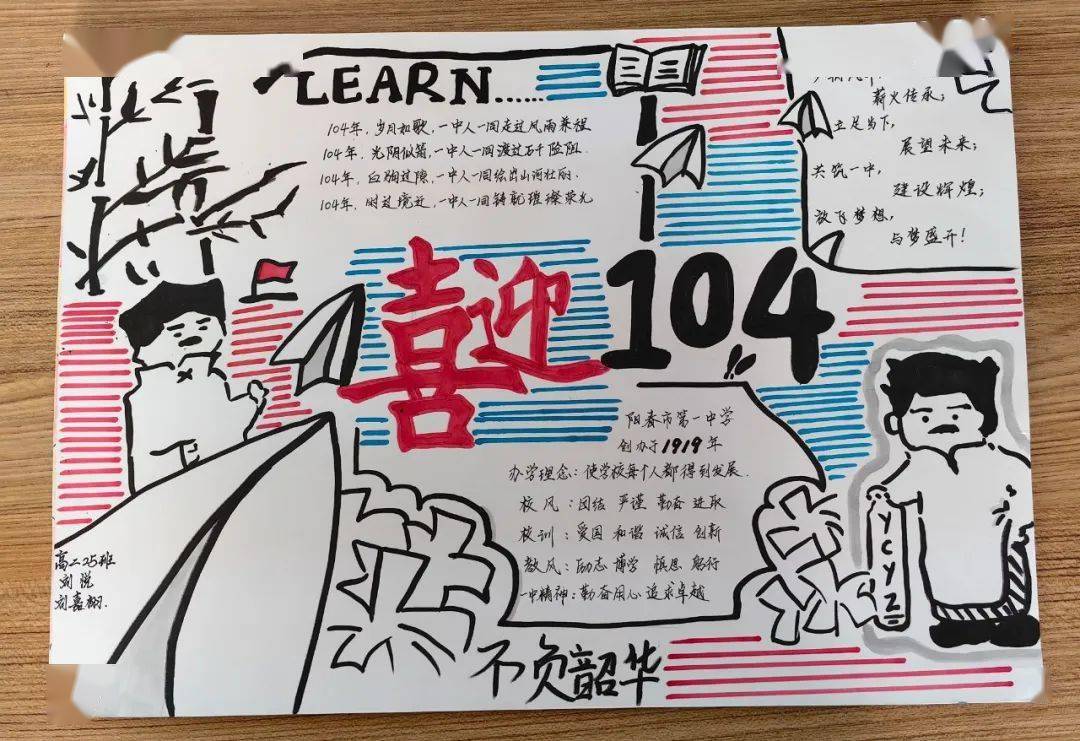 LEARN......
104年，岁月如歌，一中人一同走过风雨兼程
104年，光阴似箭，一中人一同渡过万千险阻.
104年，白驹过隙，一中人一同绘出山河壮丽.
104年，时过境迁，一中人一同铸就璀璨荣光
薪火传承；
立足当下，
展望未来；
共筑一中，
建设辉煌；
放飞梦想，
与梦盛开！
喜迎104
阳春市第一中学
创办于1919年
办学理念：使学校每个人都得到发展.
校风：团结 严谨 勤奋 进取
校训：爱国 和谐 诚信 创新
教风：励志 博学 慎思 躬行
一中精神：勤奋用心 追求卓越
YCYZ
高二25班
刘悦
刘嘉栩.
不负韶华